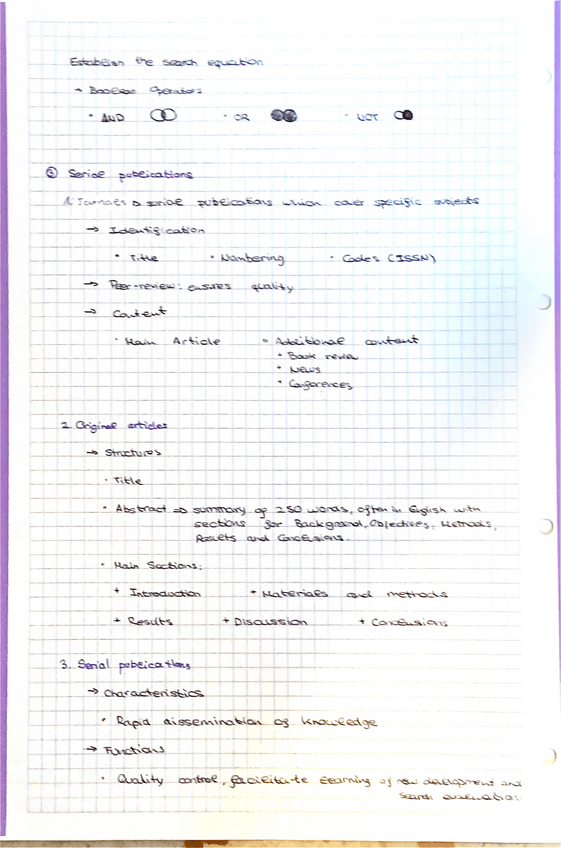 Establish the search equation
→ Boolean Operators
· AND · OR · NOT
③ Serial publications
1. Journals → serial publications which cover specific subjects
→ Identification
· Title · Numbering · Codes (ISSN)
→ Peer-review: ensures quality
→ Content
· Main Article · Additional content
· Book review
· News
· Conferences
2. Original articles
→ Structures
· Title
· Abstract ⇒ summary of 250 words, often in English with
sections for Background, Objectives, Methods,
Results and Conclusions.
· Main Sections:
+ Introduction + Materials and methods
+ Results + Discussion + Conclusions
3. Serial publications
→ Characteristics
· Rapid dissemination of knowledge
→ Functions
· Quality control, facilitate learning of new development and
search